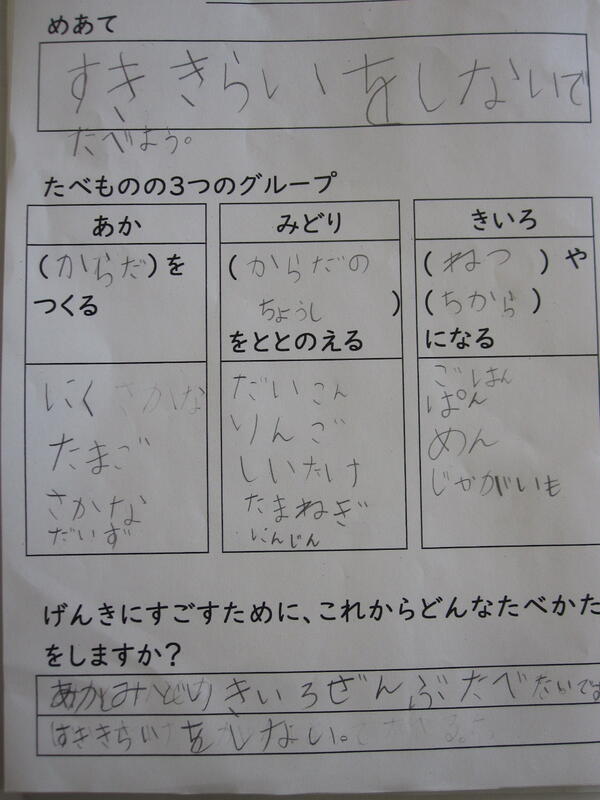 めあて
すききらいをしないで
たべよう。
たべものの3つのグループ
あか
(からだ)を
つくる
にく さかな
たまご
さかな
だいず
みどり
(からだの
ちょうし)
をととのえる
だいこん
りんご
しいたけ
たまねぎ
にんじん
きいろ
(ねつ)や
(ちから)
になる
ごはん
ぱん
めん
じゃがいも
げんきにすごすために、これからどんなたべかた
をしますか?
あかとみどりきいろぜんぶたべたいです
すききらいをしない。